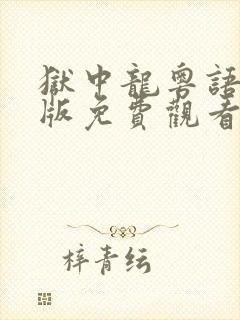 獄中龍粵語
版免費觀看
梓青纭